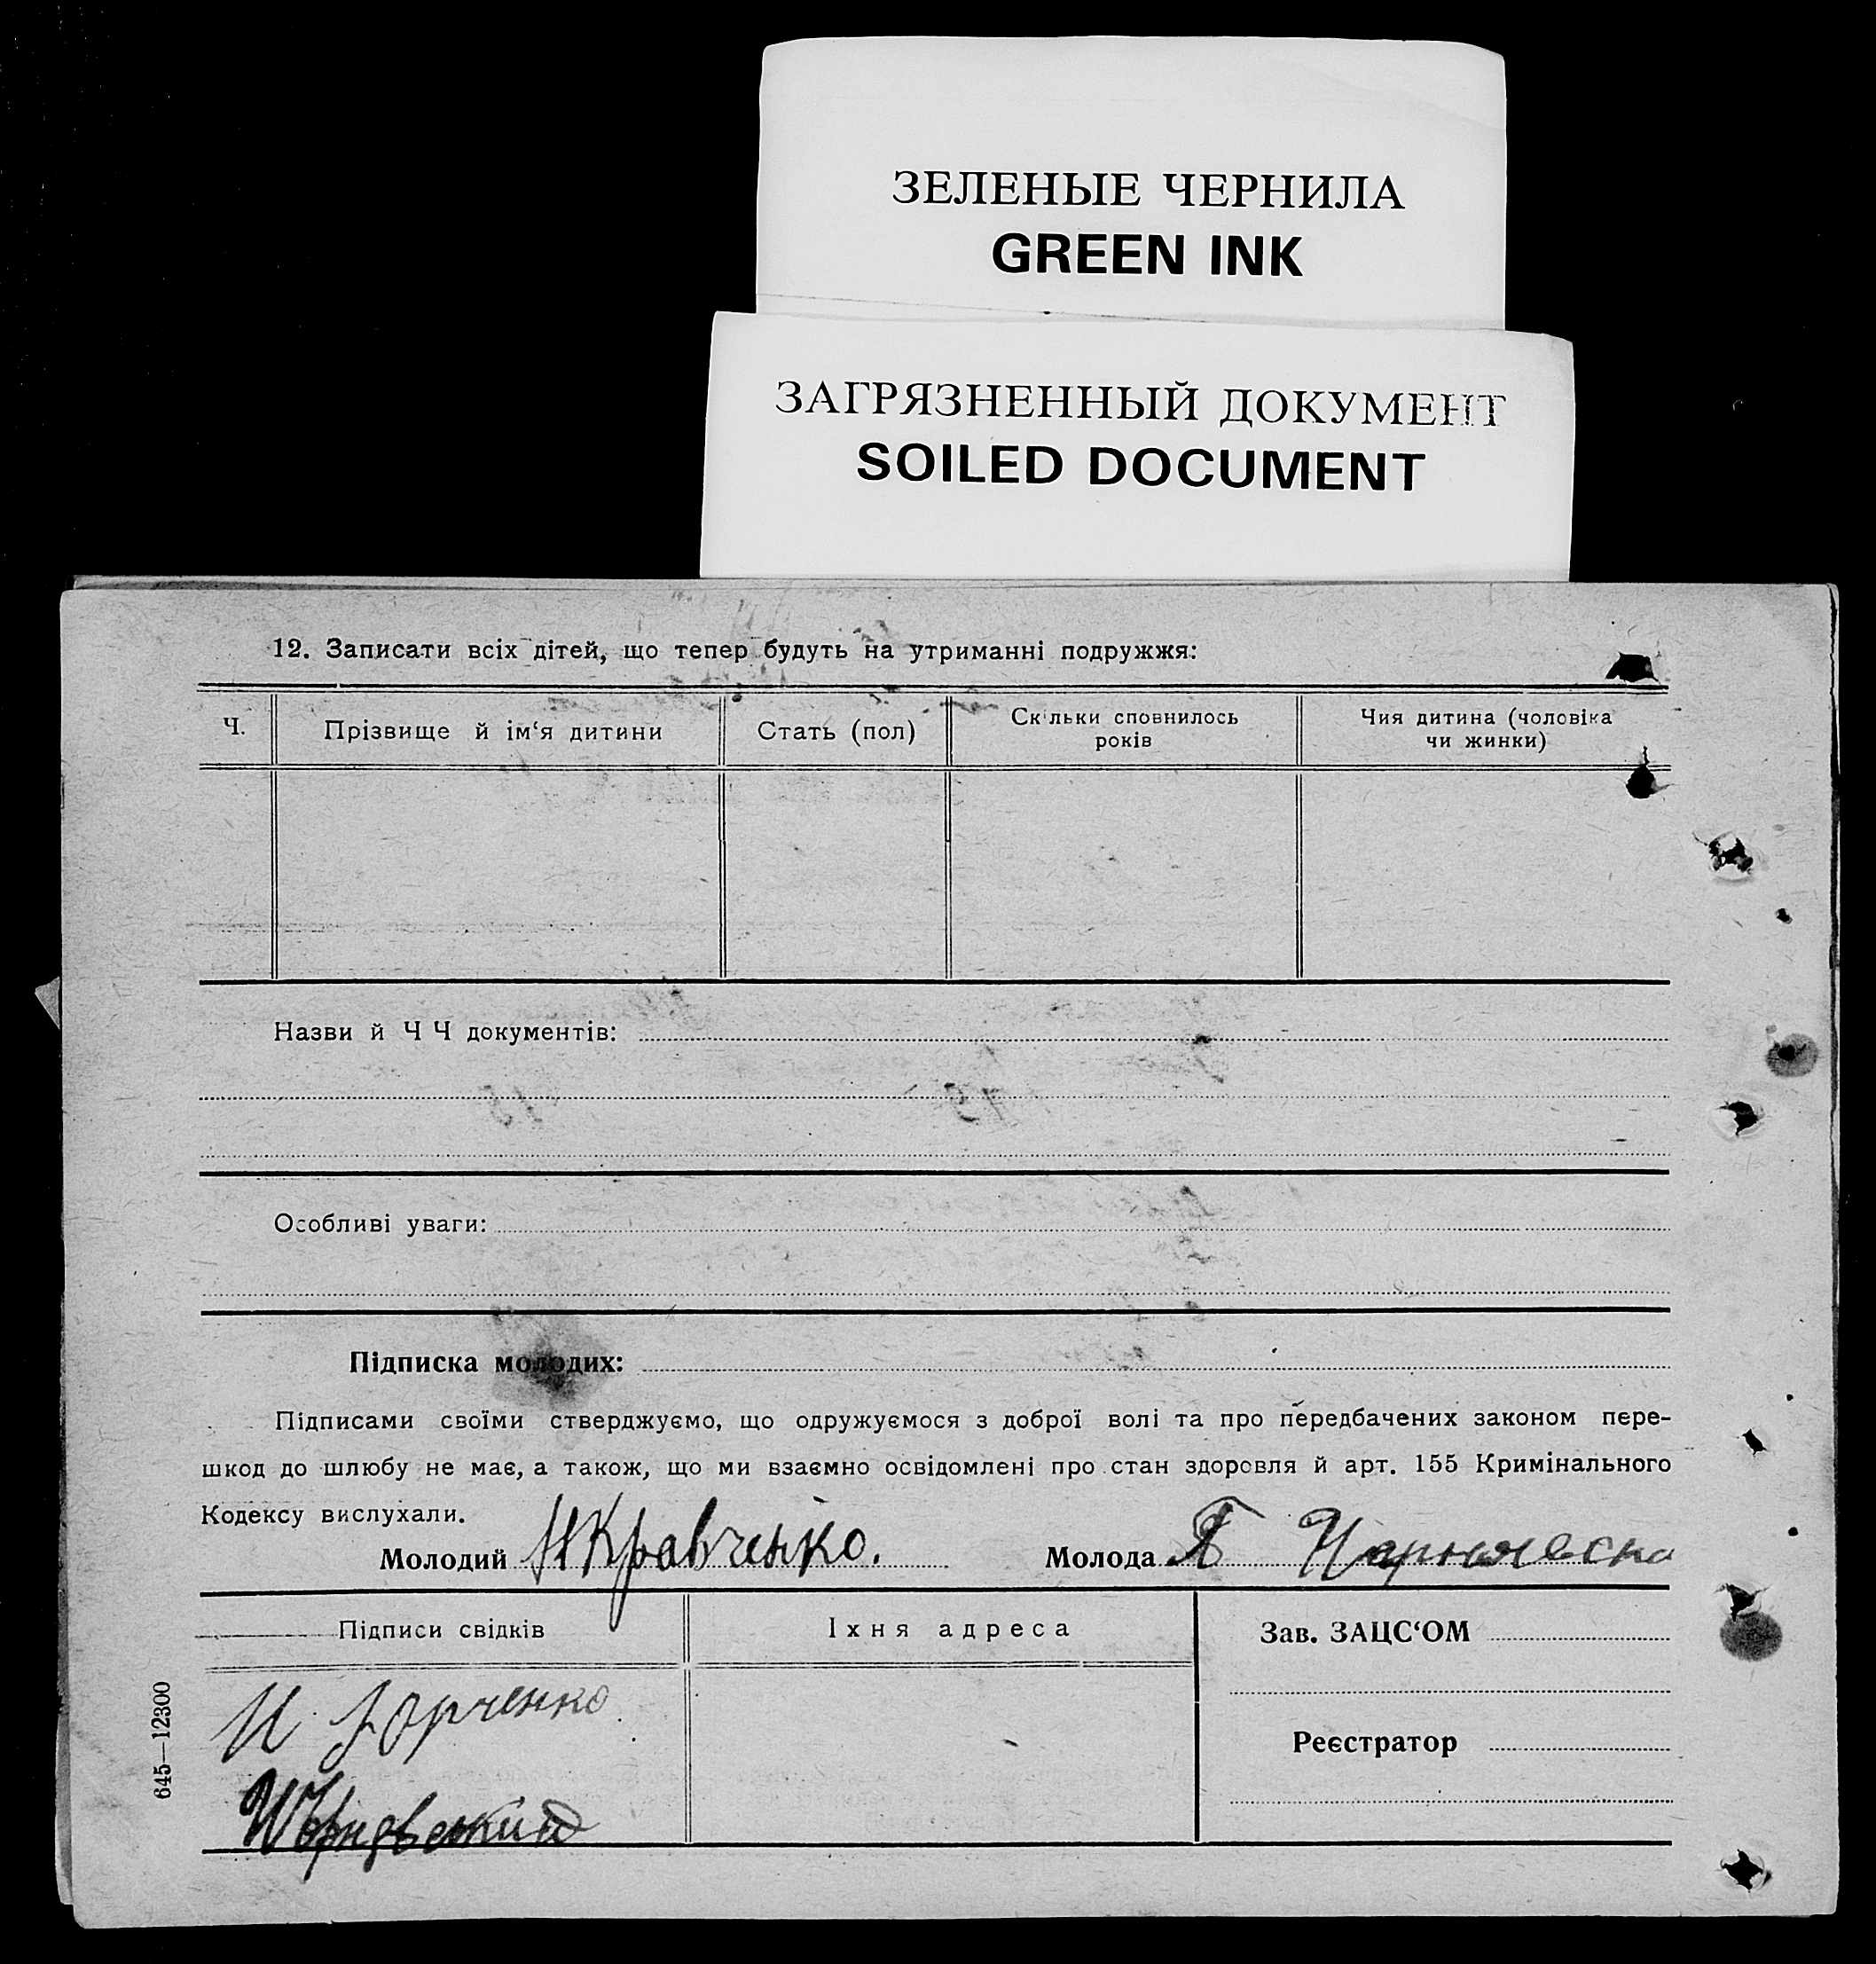 ЗЕЛЕНЫЕ ЧЕРНИЛА
GREEN INK
ЗАГРЯЗНЕННЫЙ ДОКУМЕНТ
SOILED DOCUMENT
12. Записати всіх дітей, що тепер будуть на утриманні подружжя:
Ч. Прізвище й ім‘я дитини Стать (пол) Скільки сповнилось років Чия дитина (чоловіка чи жинки)
Назви й Ч Ч документів:
Особливі уваги:
Підписка молодих:
Підписами своїми стверджуємо, що одружуємося з доброї волі та про передбачених законом пере-
шкод до шлюбу не має, а також, що ми взаємно освідомлені про стан здоровля й арт. 155 Кримінального
Кодексу вислухали.
Молодий Кравченко. Молода
Підписи свідків Іхня адреса Зав. ЗАЦС‘ОМ
Реєстратор
645—12300